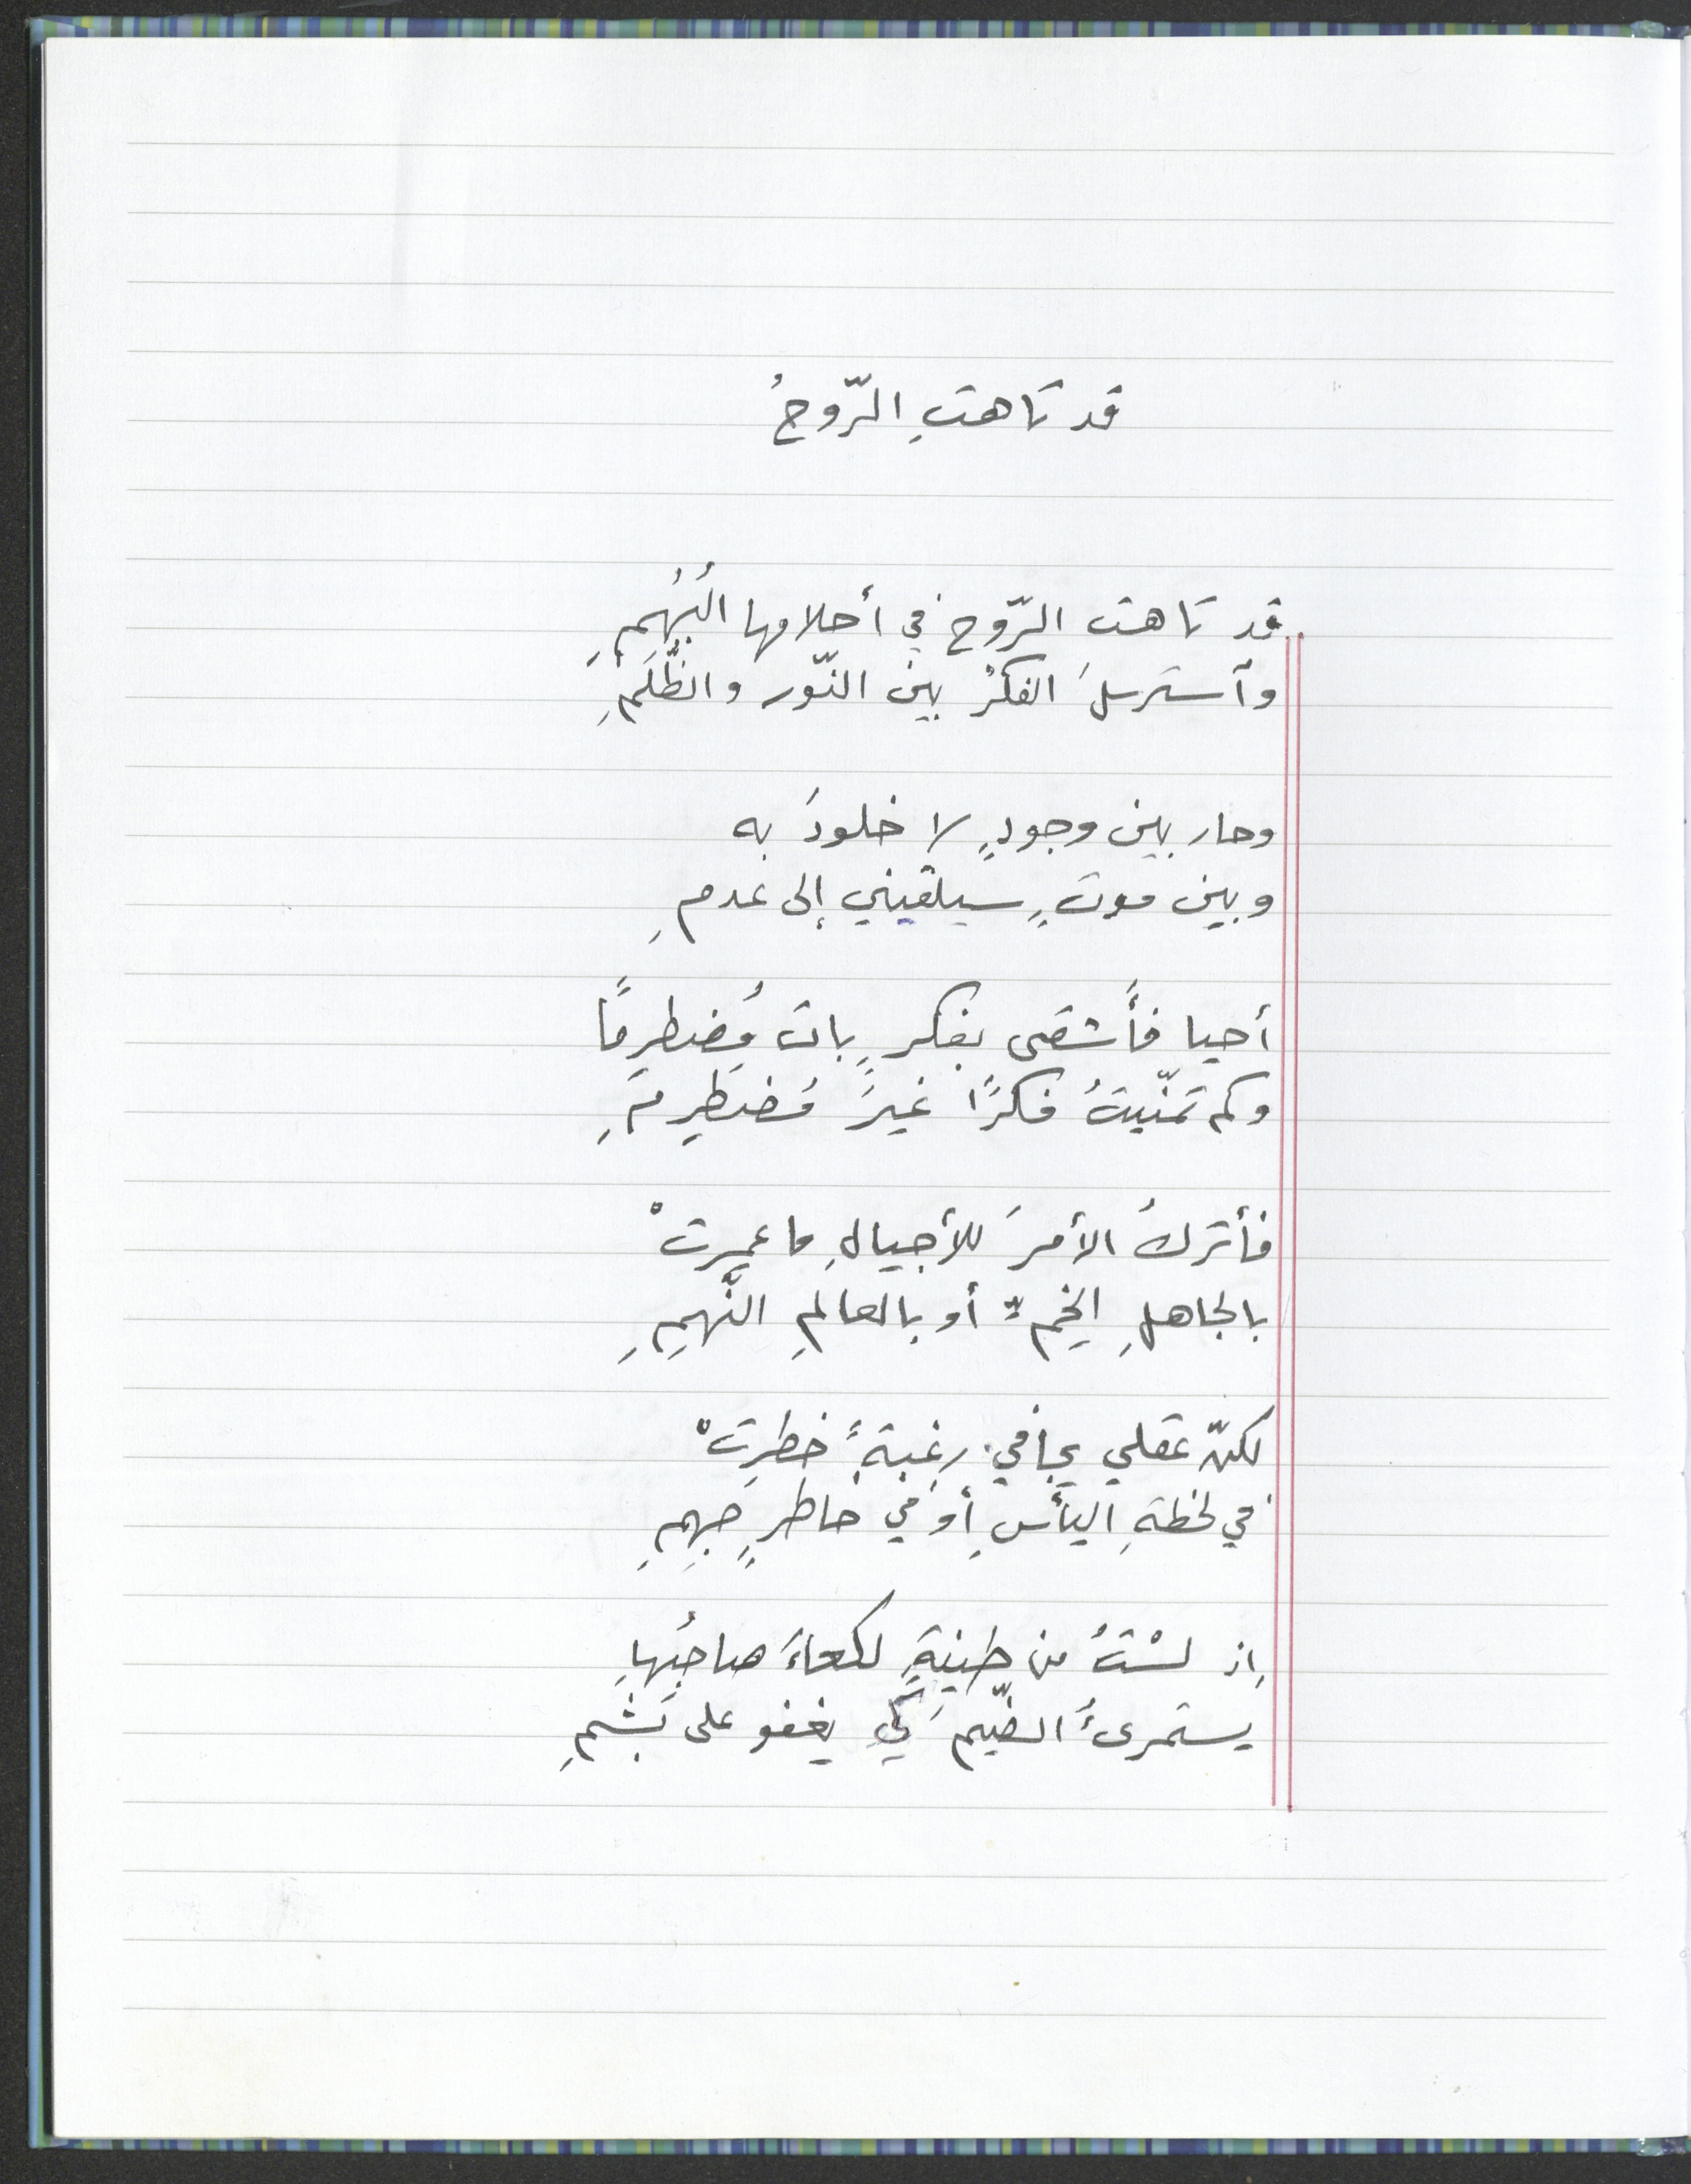 قد تاهتِ الرّوحُ
قد تاهت الرّوح في أحلامها البُهُمِ
وآسترسلَ الفكرُ بين النّور والظُّلَمِ
وحار بين وجودٍ لا خلودَ به
وبين موتٍ سيلقيني إلى عدمِ
أحيا فأَشقى بفكرٍ باتَ مُضطرِمًا
وكم تمنّيتُ فكرًا غيرَ مُضطَرِمِ
فأتركُ الأمرَ للأجيالِ ما عمِرتْ
بالجاهلِ الخِمِّ أو بالعالمِ النّهِمِ
لكنّ عقلي يجافي رغبةً خطرتْ
في لحظةِ اليأسِ أو في خاطرٍ جهِمِ
إذ لسْتُ من طينةٍ لكعاءَ صاحبُها
يستمرىءُ الضّيمَ كي يغفو على بَشَمِ